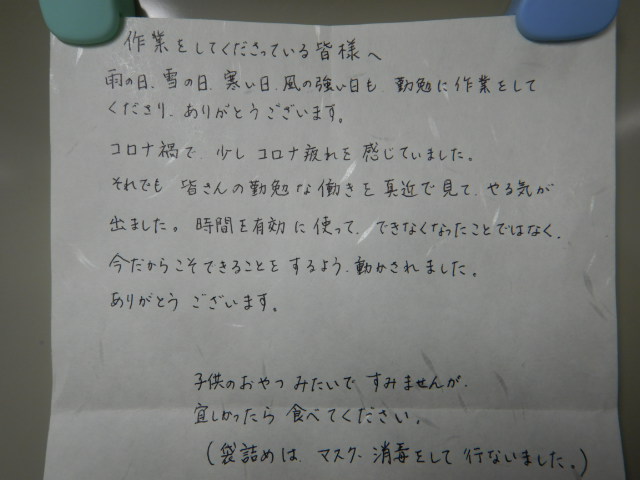 作業をしてくださっている皆様へ
雨の日、雪の日、寒い日、風の強い日も、勤勉に作業をして
くださり、ありがとうございます。
コロナ禍で、少しコロナ疲れを感じていました。
それでも皆さんの勤勉な働きを真近で見て、やる気が
出ました。時間を有効に使って、できなくなったことではなく、
今だからこそできることをするよう、動かされました。
ありがとうございます。
子供のおやつみたいですみませんが、
宜しかったら食べてください。
(袋詰めは、マスク、消毒をして行ないました。)